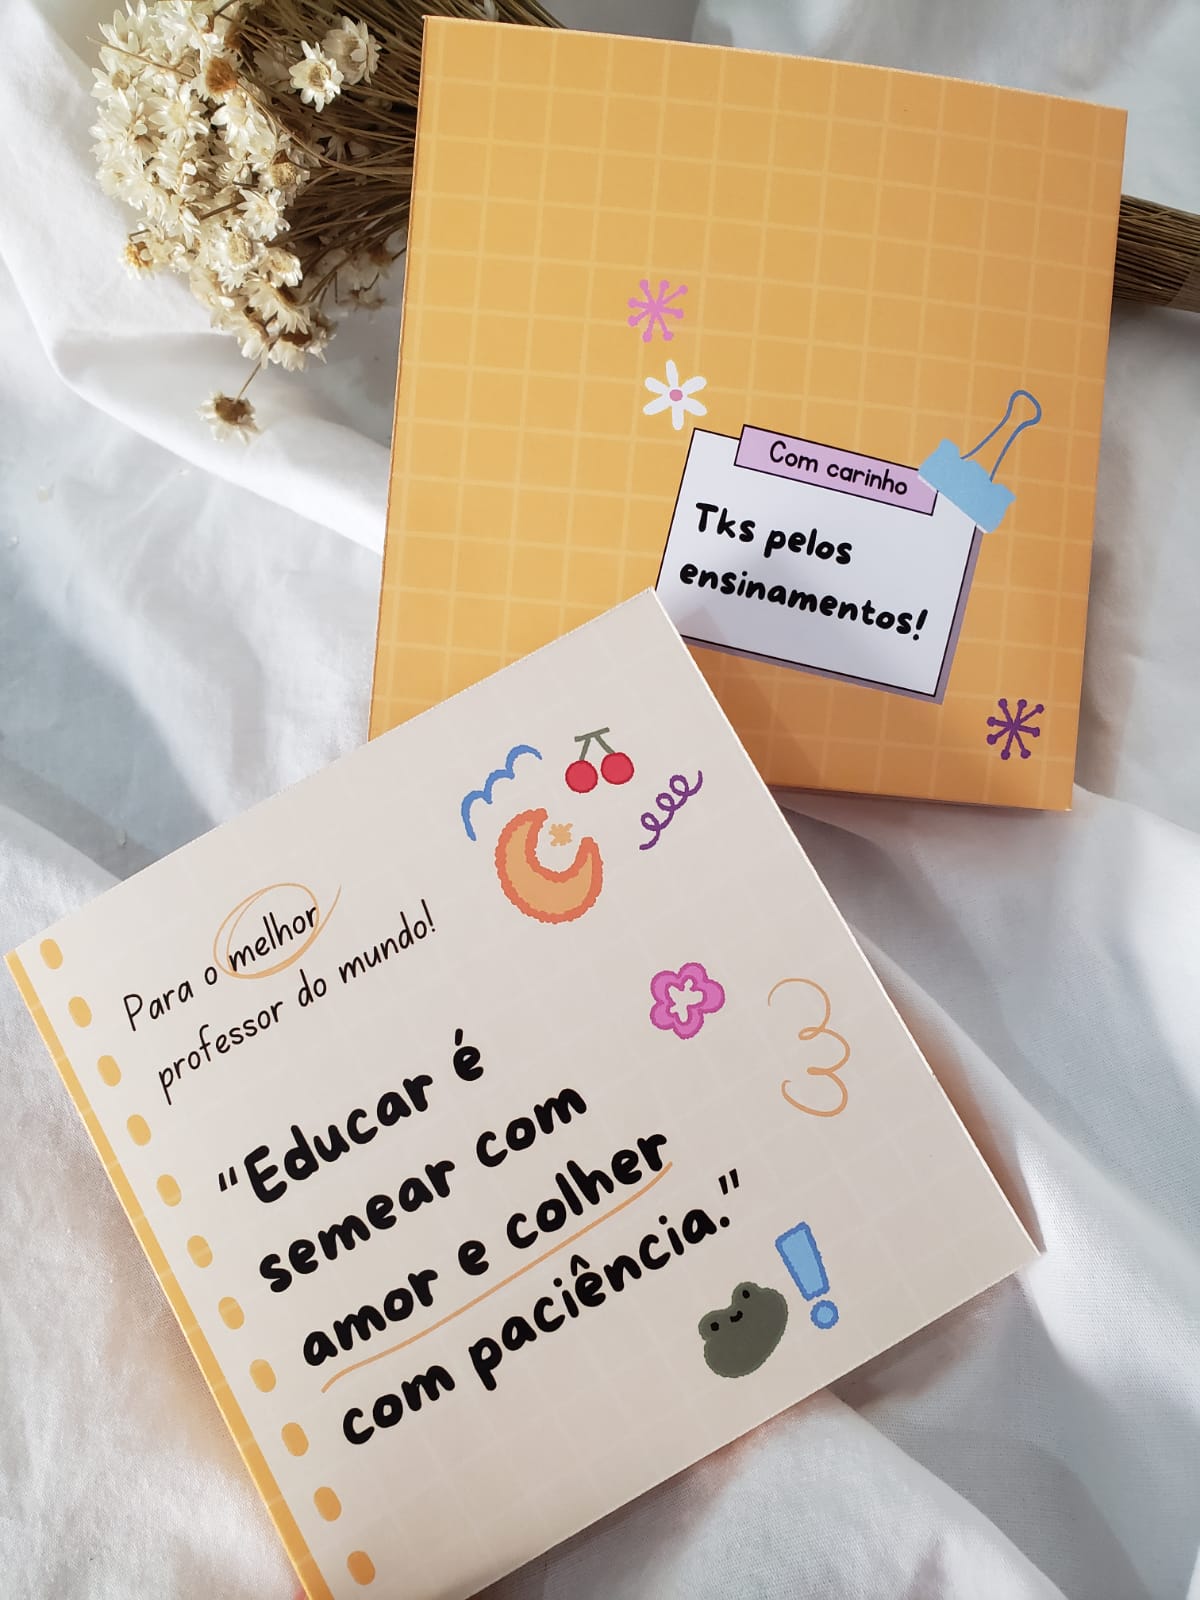 Com carinho
Tks pelos
ensinamentos!
Para o melhor
professor do mundo!
“Educar é
semear com
amor e colher
com paciência.”